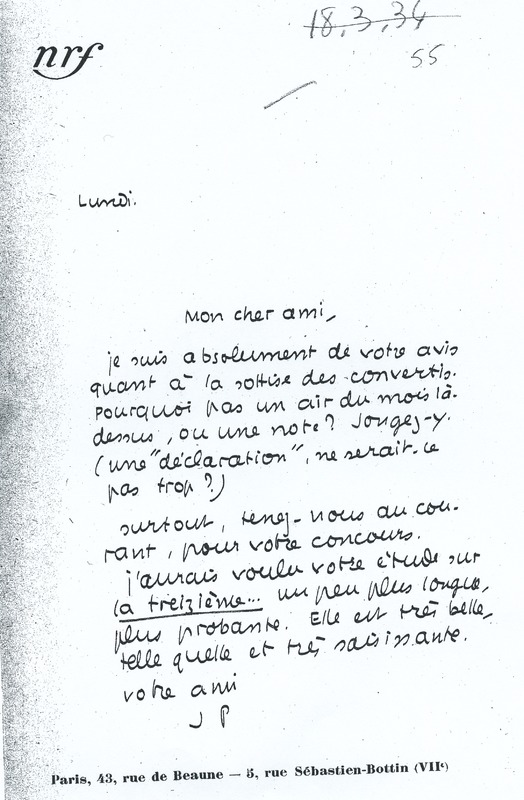 18.3.34
55
nrf
Lundi.
Mon cher ami,
je suis absolument de votre avis
quant à la sottise des convertis.
Pourquoi pas un air du mois là-
dessus, ou une note? Songez-y.
(une "déclaration", ne serait-ce
pas trop?)
surtout, tenez-nous au cou-
rant, pour votre concours.
j'aurais voulu votre étude sur
la treizième... un peu plus longue,
plus probante. Elle est très belle,
telle quelle et très saisissante.
votre ami
J P
Paris, 43, rue de Beaune — 5, rue Sébastien-Bottin (VIIe)